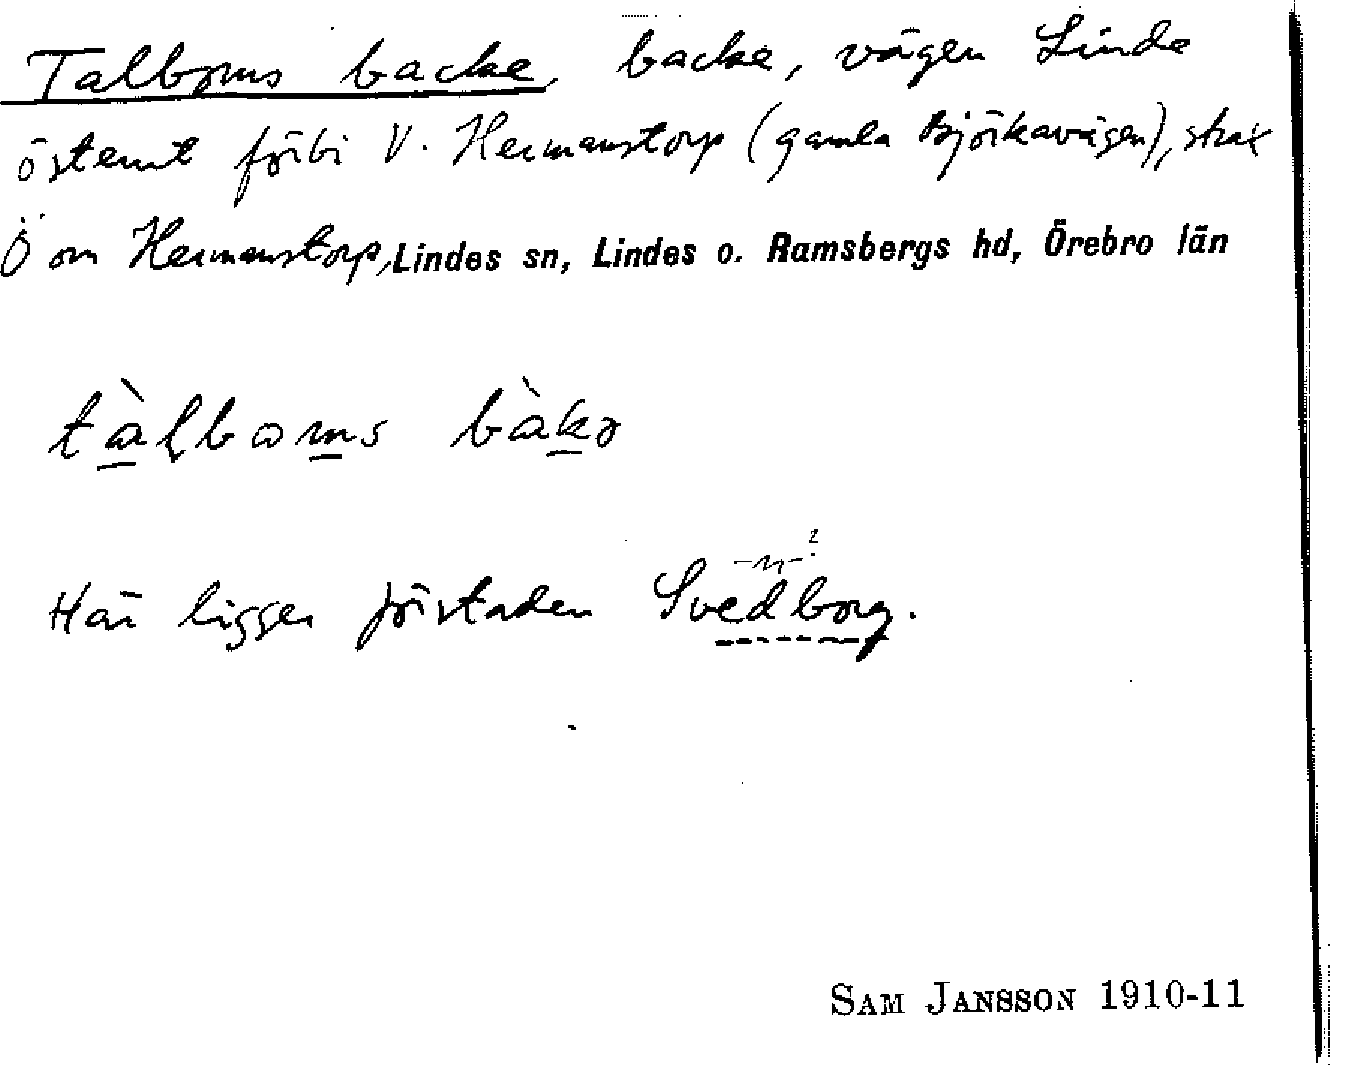 Talboms backe, backe, vägen Linde
österut förbi V. Hermanstorp (gamla Björkavägen), strax
Ö om Hermanstorp, Lindes sn, Lindes o. Ramsbergs hd, Örebro län
tàlboms bàkə
-n-?
Här ligger förstaden Svedborg.
SAM JANSSON 1910-11